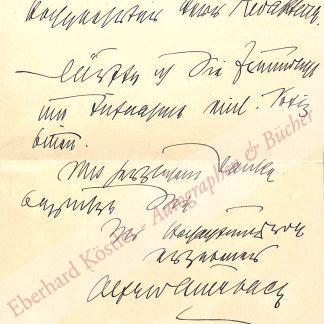 Hochgeehrter Herr Redakteur.
Dürfte ich Sie freundlichst
um Aufnahme einl. Notiz
bitten.
Mit herzlichem Danke
begrüßt Sie
Ihr hochachtungsvoll
ergebener
Alfred Auerbach
Eberhard Köstler Autographen & Bücher